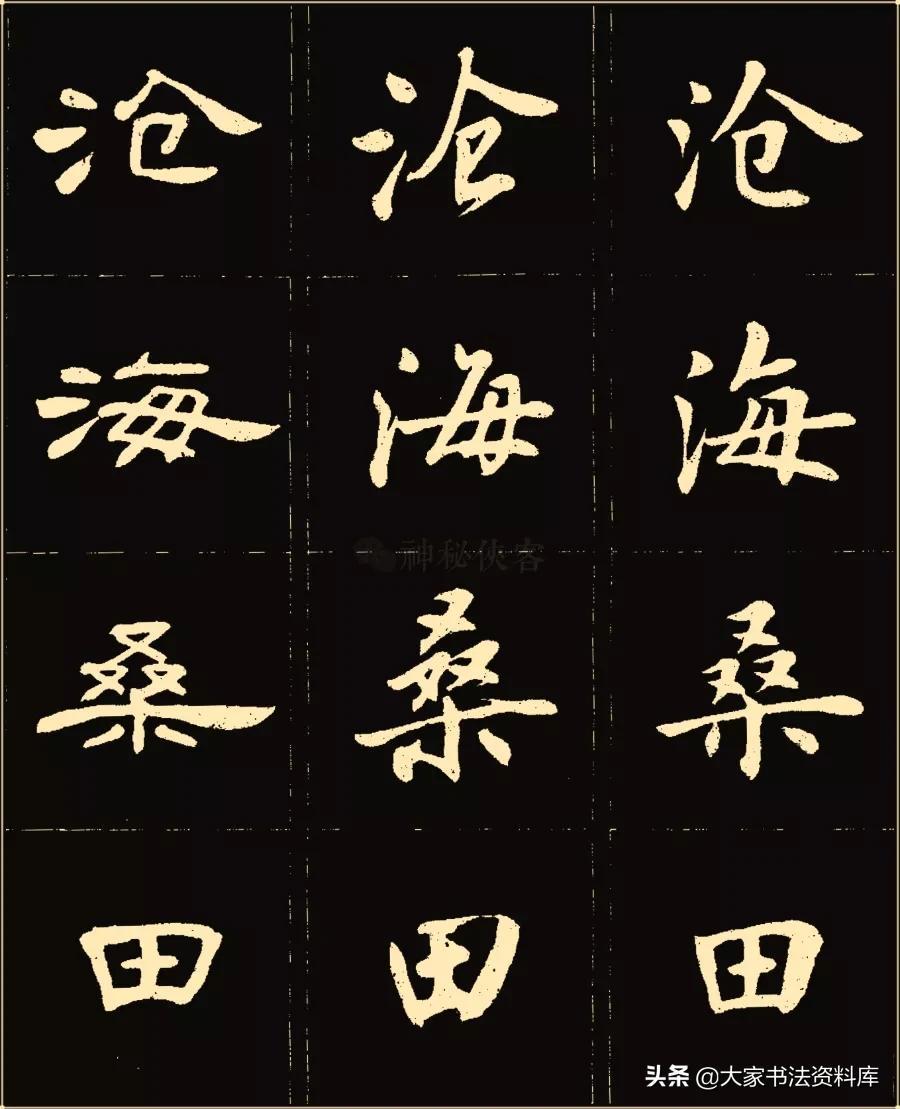 沧 沧 沧
海 海 海
桑 桑 桑
田 田 田
神秘侠客
头条 @大家书法资料库